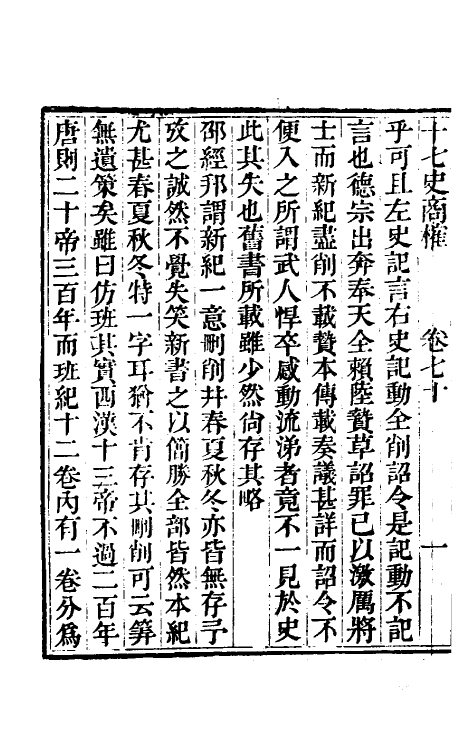 十七史商榷　卷七十　一
乎可且左史記言右史記動全削詔令是記動不記
言也德宗出奔奉天全賴陸贄草詔罪已以激厲將
士而新紀盡削不載贄本傳載奏議甚詳而詔令不
便入之所謂武人悍卒感動流涕者竟不一見於史
此其失也舊書所載雖少然尙存其略
邵經邦謂新紀一意刪削并春夏秋冬亦皆無存予
攷之誠然不覺失笑新書之以簡勝全部皆然本紀
尤甚春夏秋冬特一字耳猶不肯存其刪削可云筭
無遺策矣雖曰仿班其實西漢十三帝不過二百年
唐則二十帝三百年而班紀十二卷內有一卷分爲